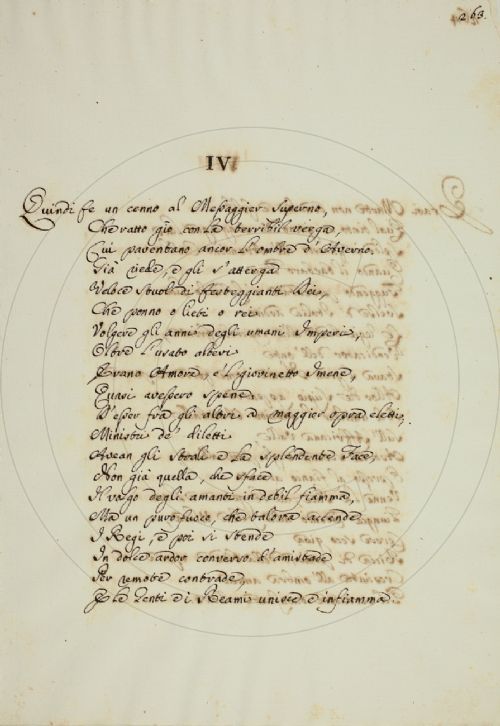 263
IV
Quindi fe un cenno al Messaggier Superno,
Che ratto giò con la terribil verga,
Cui paventano ancor l'ombre d'Averno.
Già riede, e gli s'atterga
Veloce stuol di festeggianti Dei,
Che ponno o lieti o rei
Volgere gli anni degli umani Imperi,
Oltre l'usato alteri
Erano Amore, e 'l giovinetto Imene,
Quasi avesser spene
D'esser fra gli altri a maggior opra eletti,
Ministri de' diletti
Avean gli strali e la splendente Face,
Non già quella, che sface
Il vago degli amanti in debil fiamma,
Ma un puro fuoco, che talora accende
I Regi, e poi si stende
In dolce ardor converso d'amistade
Per remote contrade,
E le Genti e i Reami unisce e infiamma.